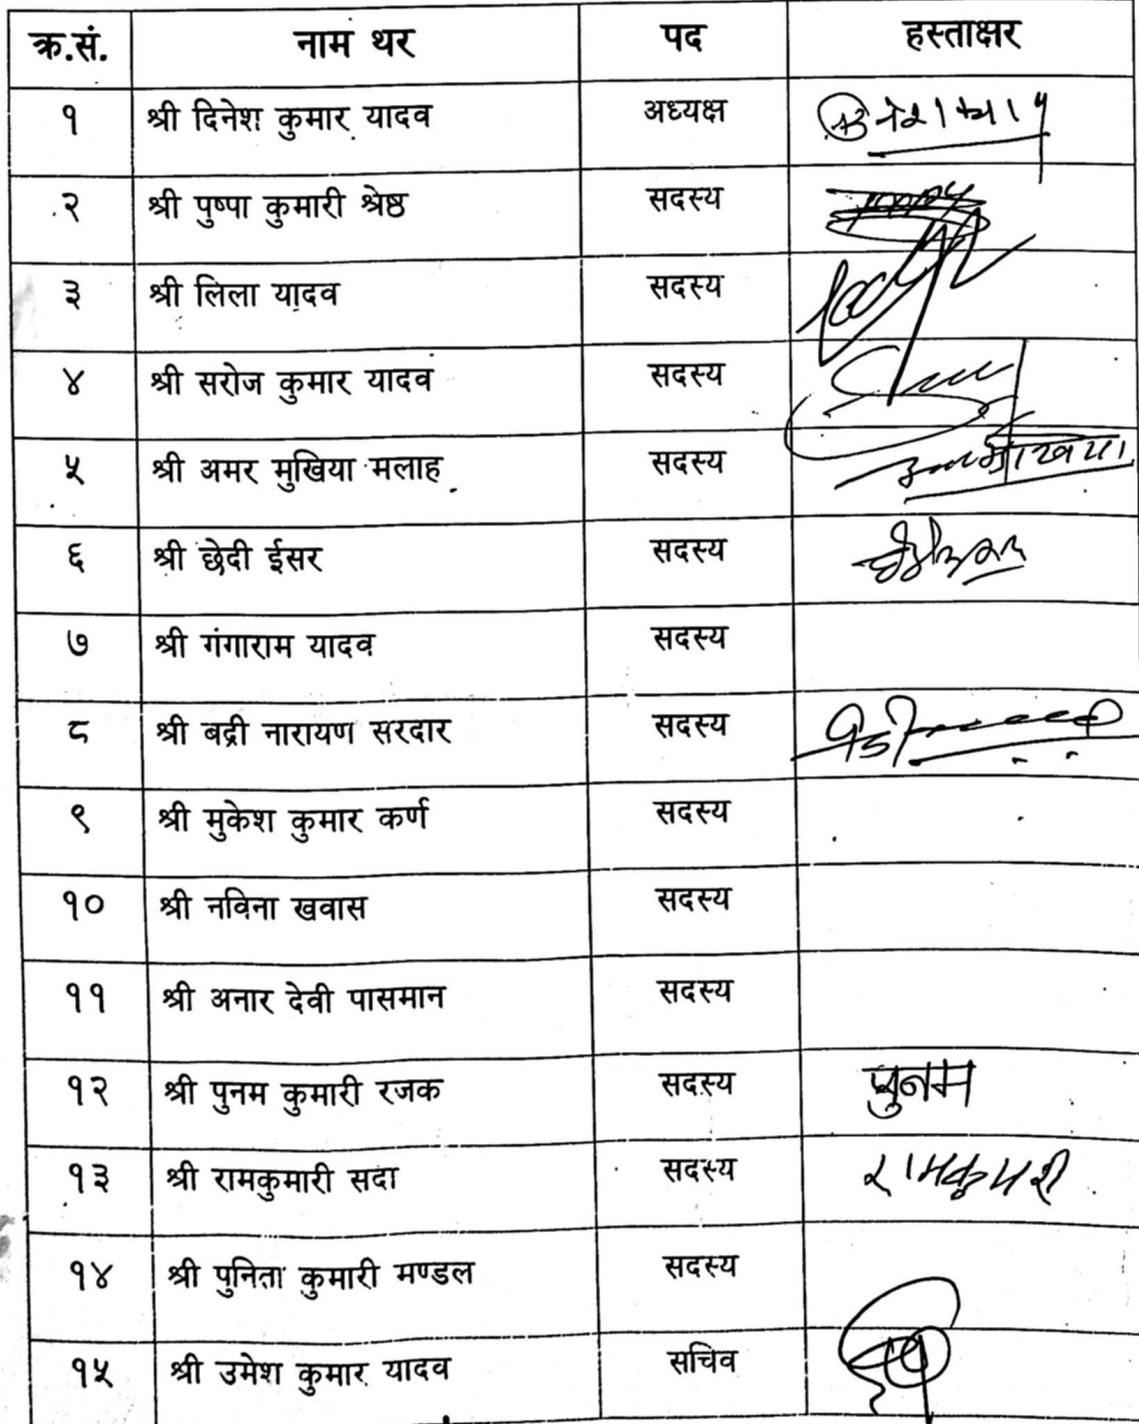 क्र.सं. नाम थर पद हस्ताक्षर
१ श्री दिनेश कुमार यादव अध्यक्ष
२ श्री पुष्पा कुमारी श्रेष्ठ सदस्य
३ श्री लिला यादव सदस्य
४ श्री सरोज कुमार यादव सदस्य
५ श्री अमर मुखिया मलाह सदस्य
६ श्री छेदी ईसर सदस्य
७ श्री गंगाराम यादव सदस्य
८ श्री बद्री नारायण सरदार सदस्य
९ श्री मुकेश कुमार कर्ण सदस्य
१० श्री नविना खवास सदस्य
११ श्री अनार देवी पासमान सदस्य
१२ श्री पुनम कुमारी रजक सदस्य पुनम
१३ श्री रामकुमारी सदा सदस्य रामकुमारी
१४ श्री पुनिता कुमारी मण्डल सदस्य
१५ श्री उमेश कुमार यादव सचिव